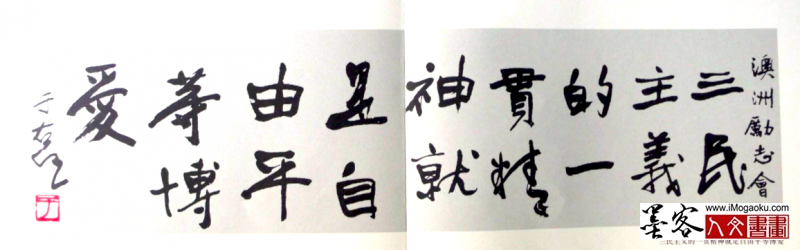 澳洲勵志會
三民
主義
的一
貫精
神就
是自
由平
等博
愛
于右任
墨客 人文書畫
www.iMogaoku.com
三民主义的一贯精神就是自由平等博爱